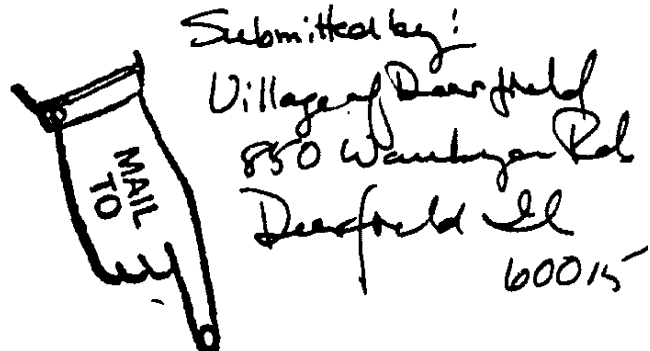 Submitted by:
Village of Deerfield
850 Waukegan Rd
Deerfield Il
60015
MAIL
TO